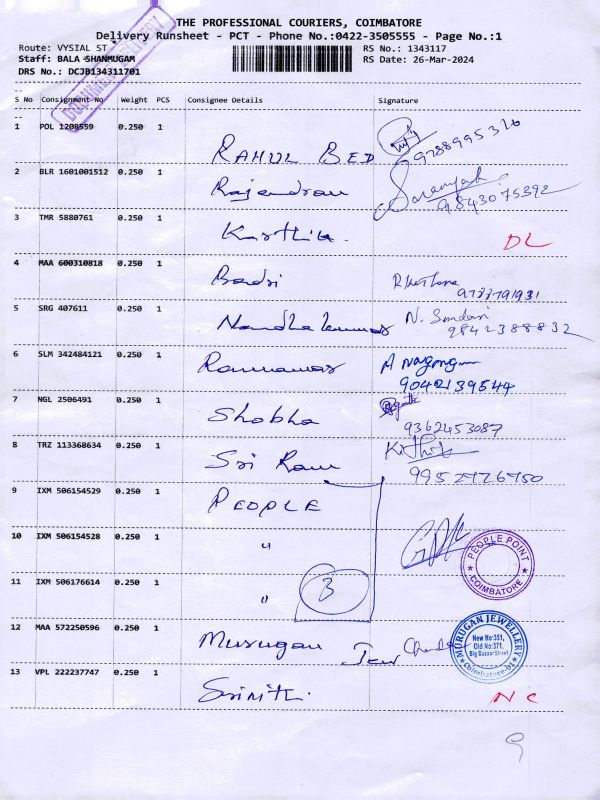 THE PROFESSIONAL COURIERS, COIMBATORE
Delivery Runsheet - PCT - Phone No.:0422-3505555 - Page No.:1
Route: VYSIAL ST RS No.: 1343117
Staff: BALA SHANMUGAM RS Date: 26-Mar-2024
DRS No.: DCJB134311701
S No Consignment No Weight PCS Consignee Details Signature
1 POL 1208559 0.250 1 RAHUL BED 9788995326
2 BLR 1601001512 0.250 1 Rajendran Saranyak 9843075392
3 TMR 5880761 0.250 1 Karthik. DL
4 MAA 600310818 0.250 1 Badri
5 SRG 407611 0.250 1 Nandhakumar N. Sundari 9842388832
6 SLM 342484121 0.250 1 Ramnawas 9042139544
7 NGL 2506491 0.250 1 Shobha 9362453087
8 TRZ 113368634 0.250 1 Sri Ram
9 IXM 506154529 0.250 1 PEOPLE
10 IXM 506154528 0.250 1 "
PEOPLE POINT
COIMBATORE
11 IXM 506176614 0.250 1 " 3
12 MAA 572250596 0.250 1 Murugan Jew
MURUGAN JEWELLERY
New No:351,
Old No:371,
Big Bazaar Street
Coimbatore-01
13 VPL 222237747 0.250 1 Srinith. NC
9